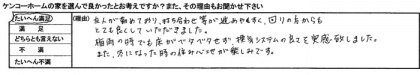 ケンコーホームの家を選んで良かったとお考えですか?また、その理由もお聞かせ下さい
たいへん満足
満足
どちらとも言えない
不満
たいへん不満
(理由)
友人が勤めており、打ち合わせ等が進みやすく、回りの方からも
とても良くしていただきました。
梅雨の時でも床がベタベタせず、換気システムの良さを実感致しました。
また、冬になった時の住み心地が楽しみです。